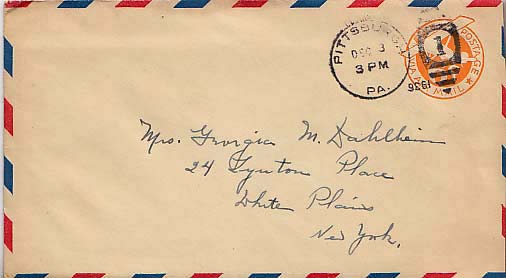 PITTSBURGH
DEC 3
3 PM
PA.
1936
1
POSTAGE
VIA AIR MAIL
Mrs. Georgia M. Dahlheim
24 Lynton Place
White Plains
New York.